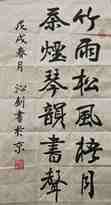 竹雨松風梧月
茶煙琴韻書聲
戊戌春月 沁剑書於京